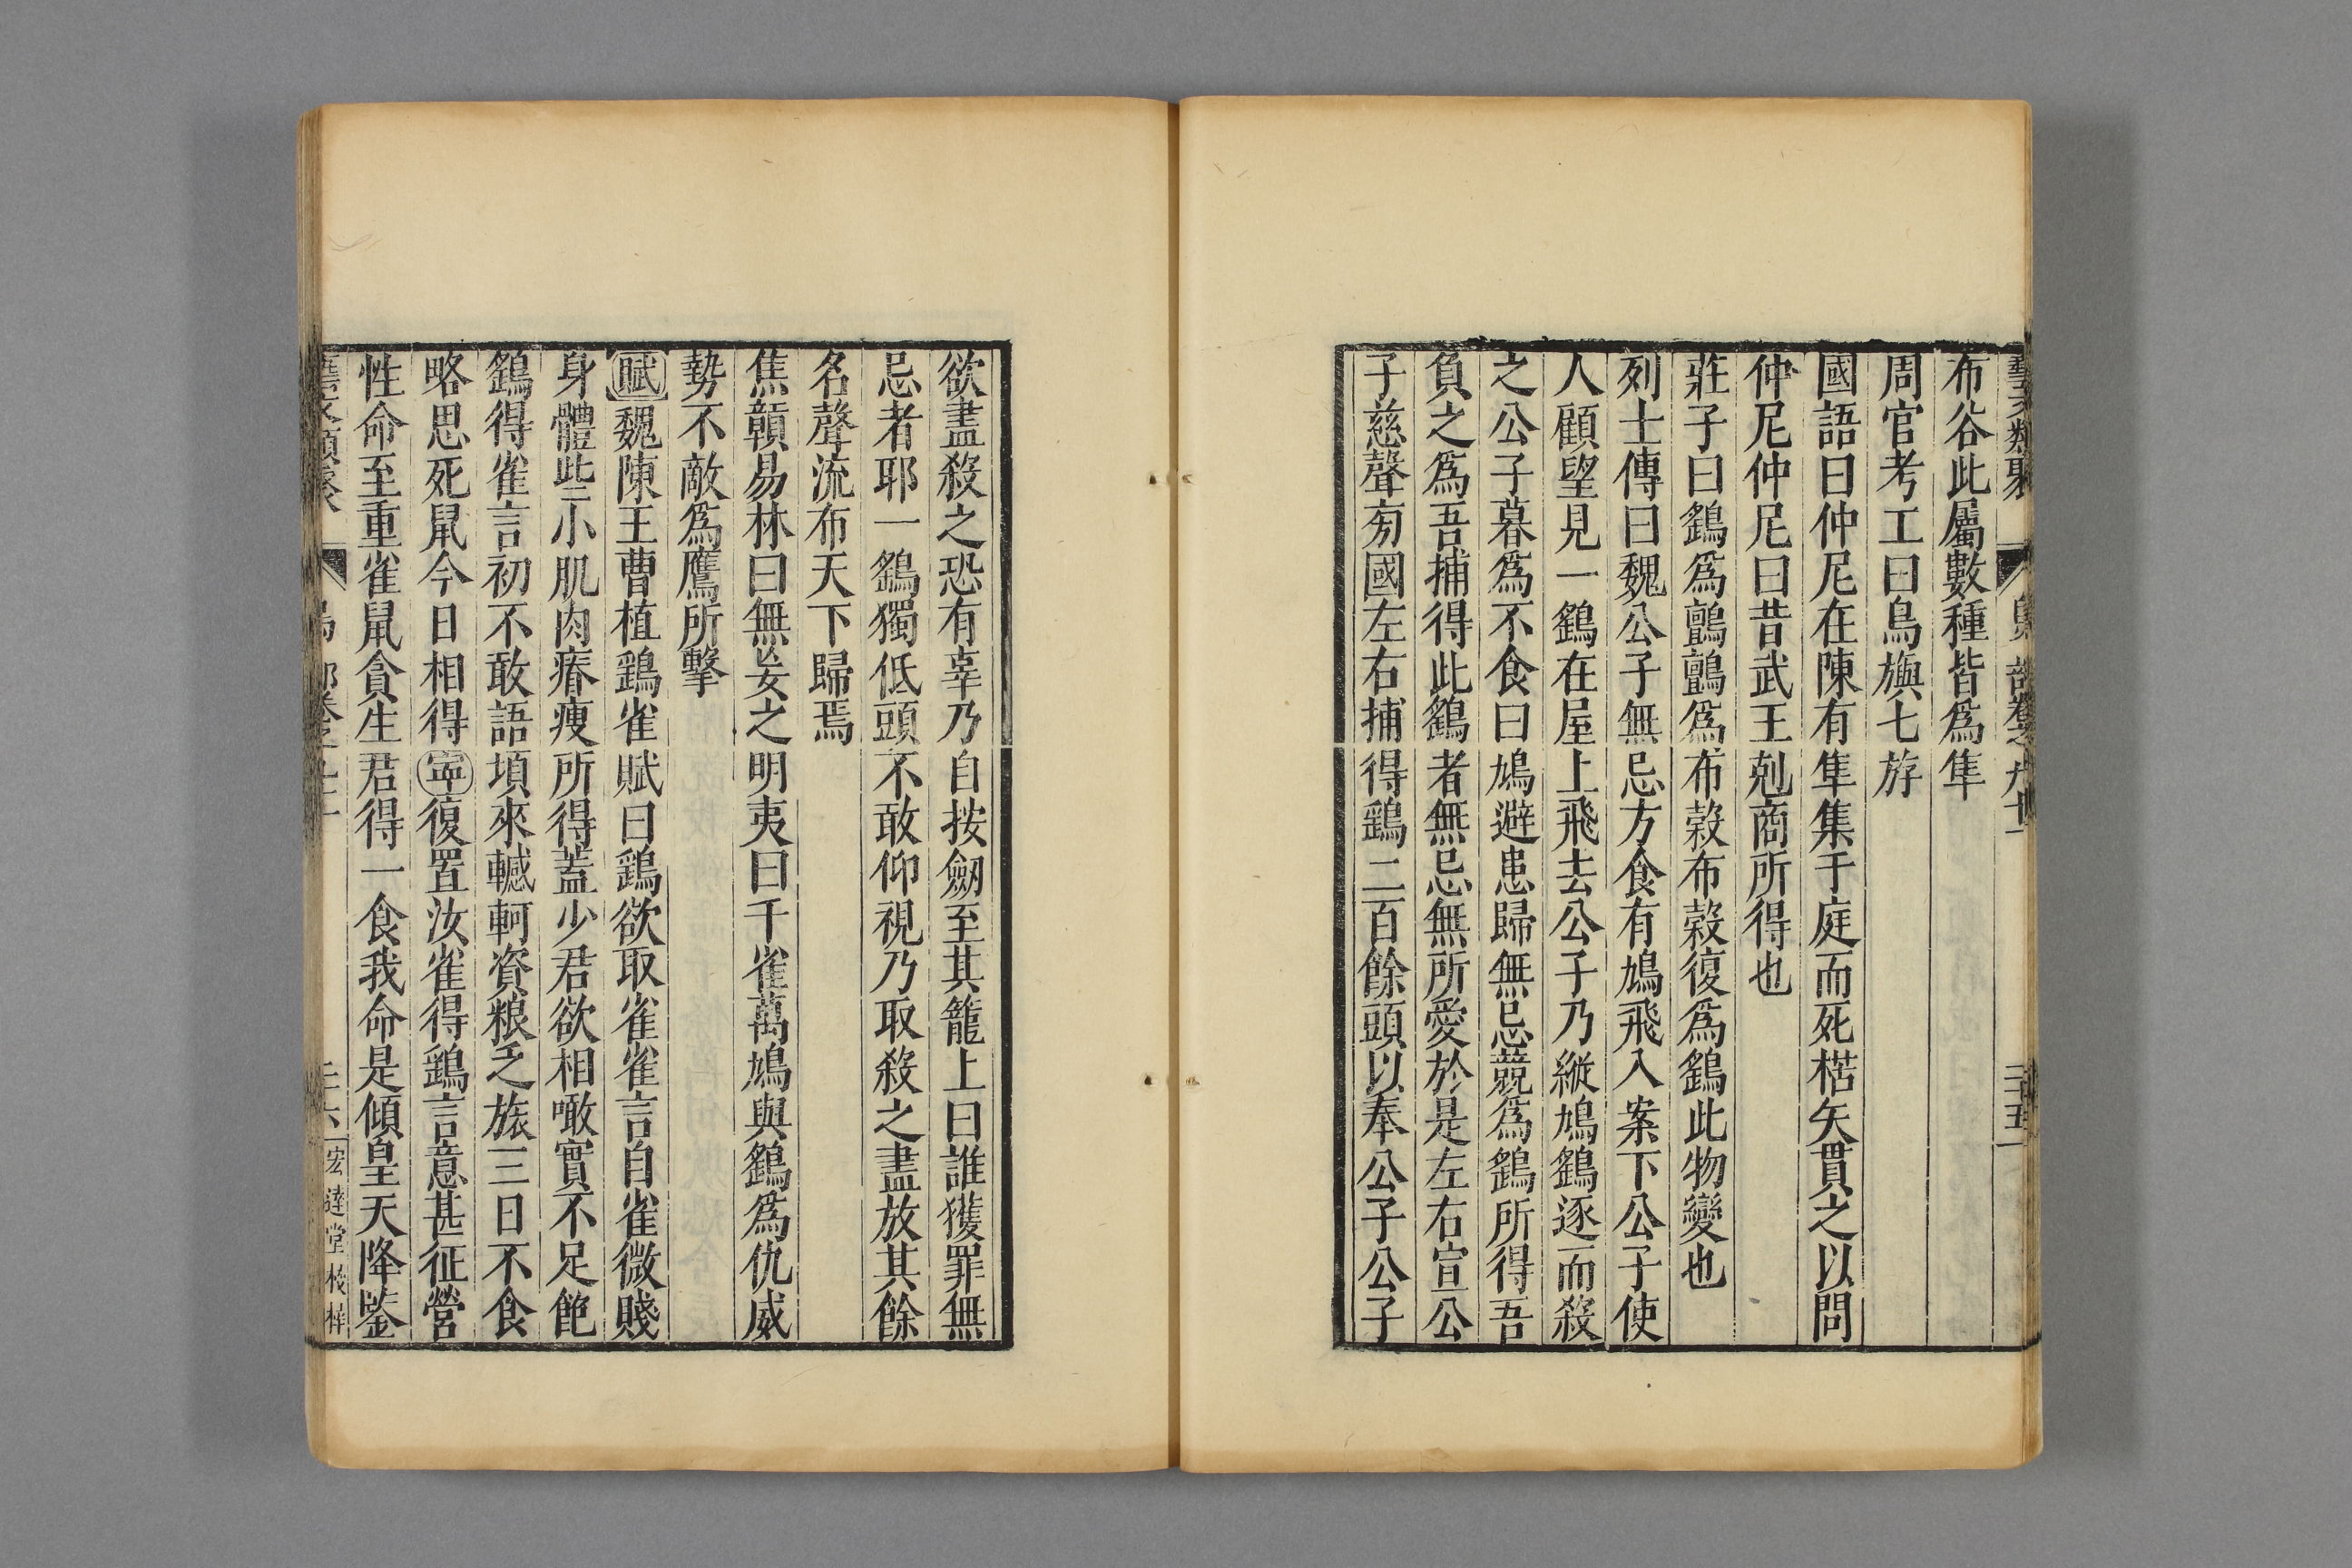 藝文類聚 鳥部卷之九十一 二十五
布谷此屬數種皆爲隼
周官考工曰鳥旟七斿
國語曰仲尼在陳有隼集于庭而死楛矢貫之以問
仲尼仲尼曰昔武王剋商所得也
莊子曰鷂爲鸇鸇爲布穀布穀復爲鷂此物變也
列士傳曰魏公子無忌方食有鳩飛入案下公子使
人顧望見一鷂在屋上飛去公子乃縱鳩鷂逐而殺
之公子暮爲不食曰鳩避患歸無忌競爲鷂所得吾
負之爲吾捕得此鷂者無忌無所愛於是左右宣公
子慈聲旁國左右捕得鷂二百餘頭以奉公子公子
欲盡殺之恐有辜乃自按劒至其籠上曰誰獲罪無
忌者耶一鷂獨低頭不敢仰視乃取殺之盡放其餘
名聲流布天下歸焉
焦贑易林曰無妄之明夷曰千雀萬鳩與鷂爲仇威
勢不敵爲鷹所擊
賦魏陳王曹植鷂雀賦曰鷂欲取雀雀言自雀微賤
身體些小肌肉瘠瘦所得蓋少君欲相噉實不足飽
鷂得雀言初不敢語頃來轗軻資粮乏旅三日不食
略思死鼠今日相得寧復置汝雀得鷂言意甚征營
性命至重雀鼠貪生君得一食我命是傾皇天降鍳
二六 宏達堂校梓